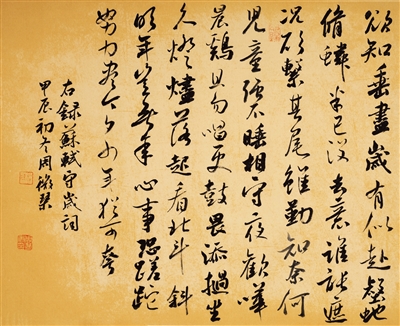 欲知垂盡歲有似赴壑蛇
脩鱗半已沒去意誰能遮
況欲繫其尾雖勤知奈何
兒童強不睡相守夜歡嘩
晨鷄且勿唱更鼓畏添撾坐
久燈燼落起看北斗斜
明年豈無年心事恐蹉跎
努力盡今夕少年猶可夸
右録蘇軾守歲詞
甲辰初冬周